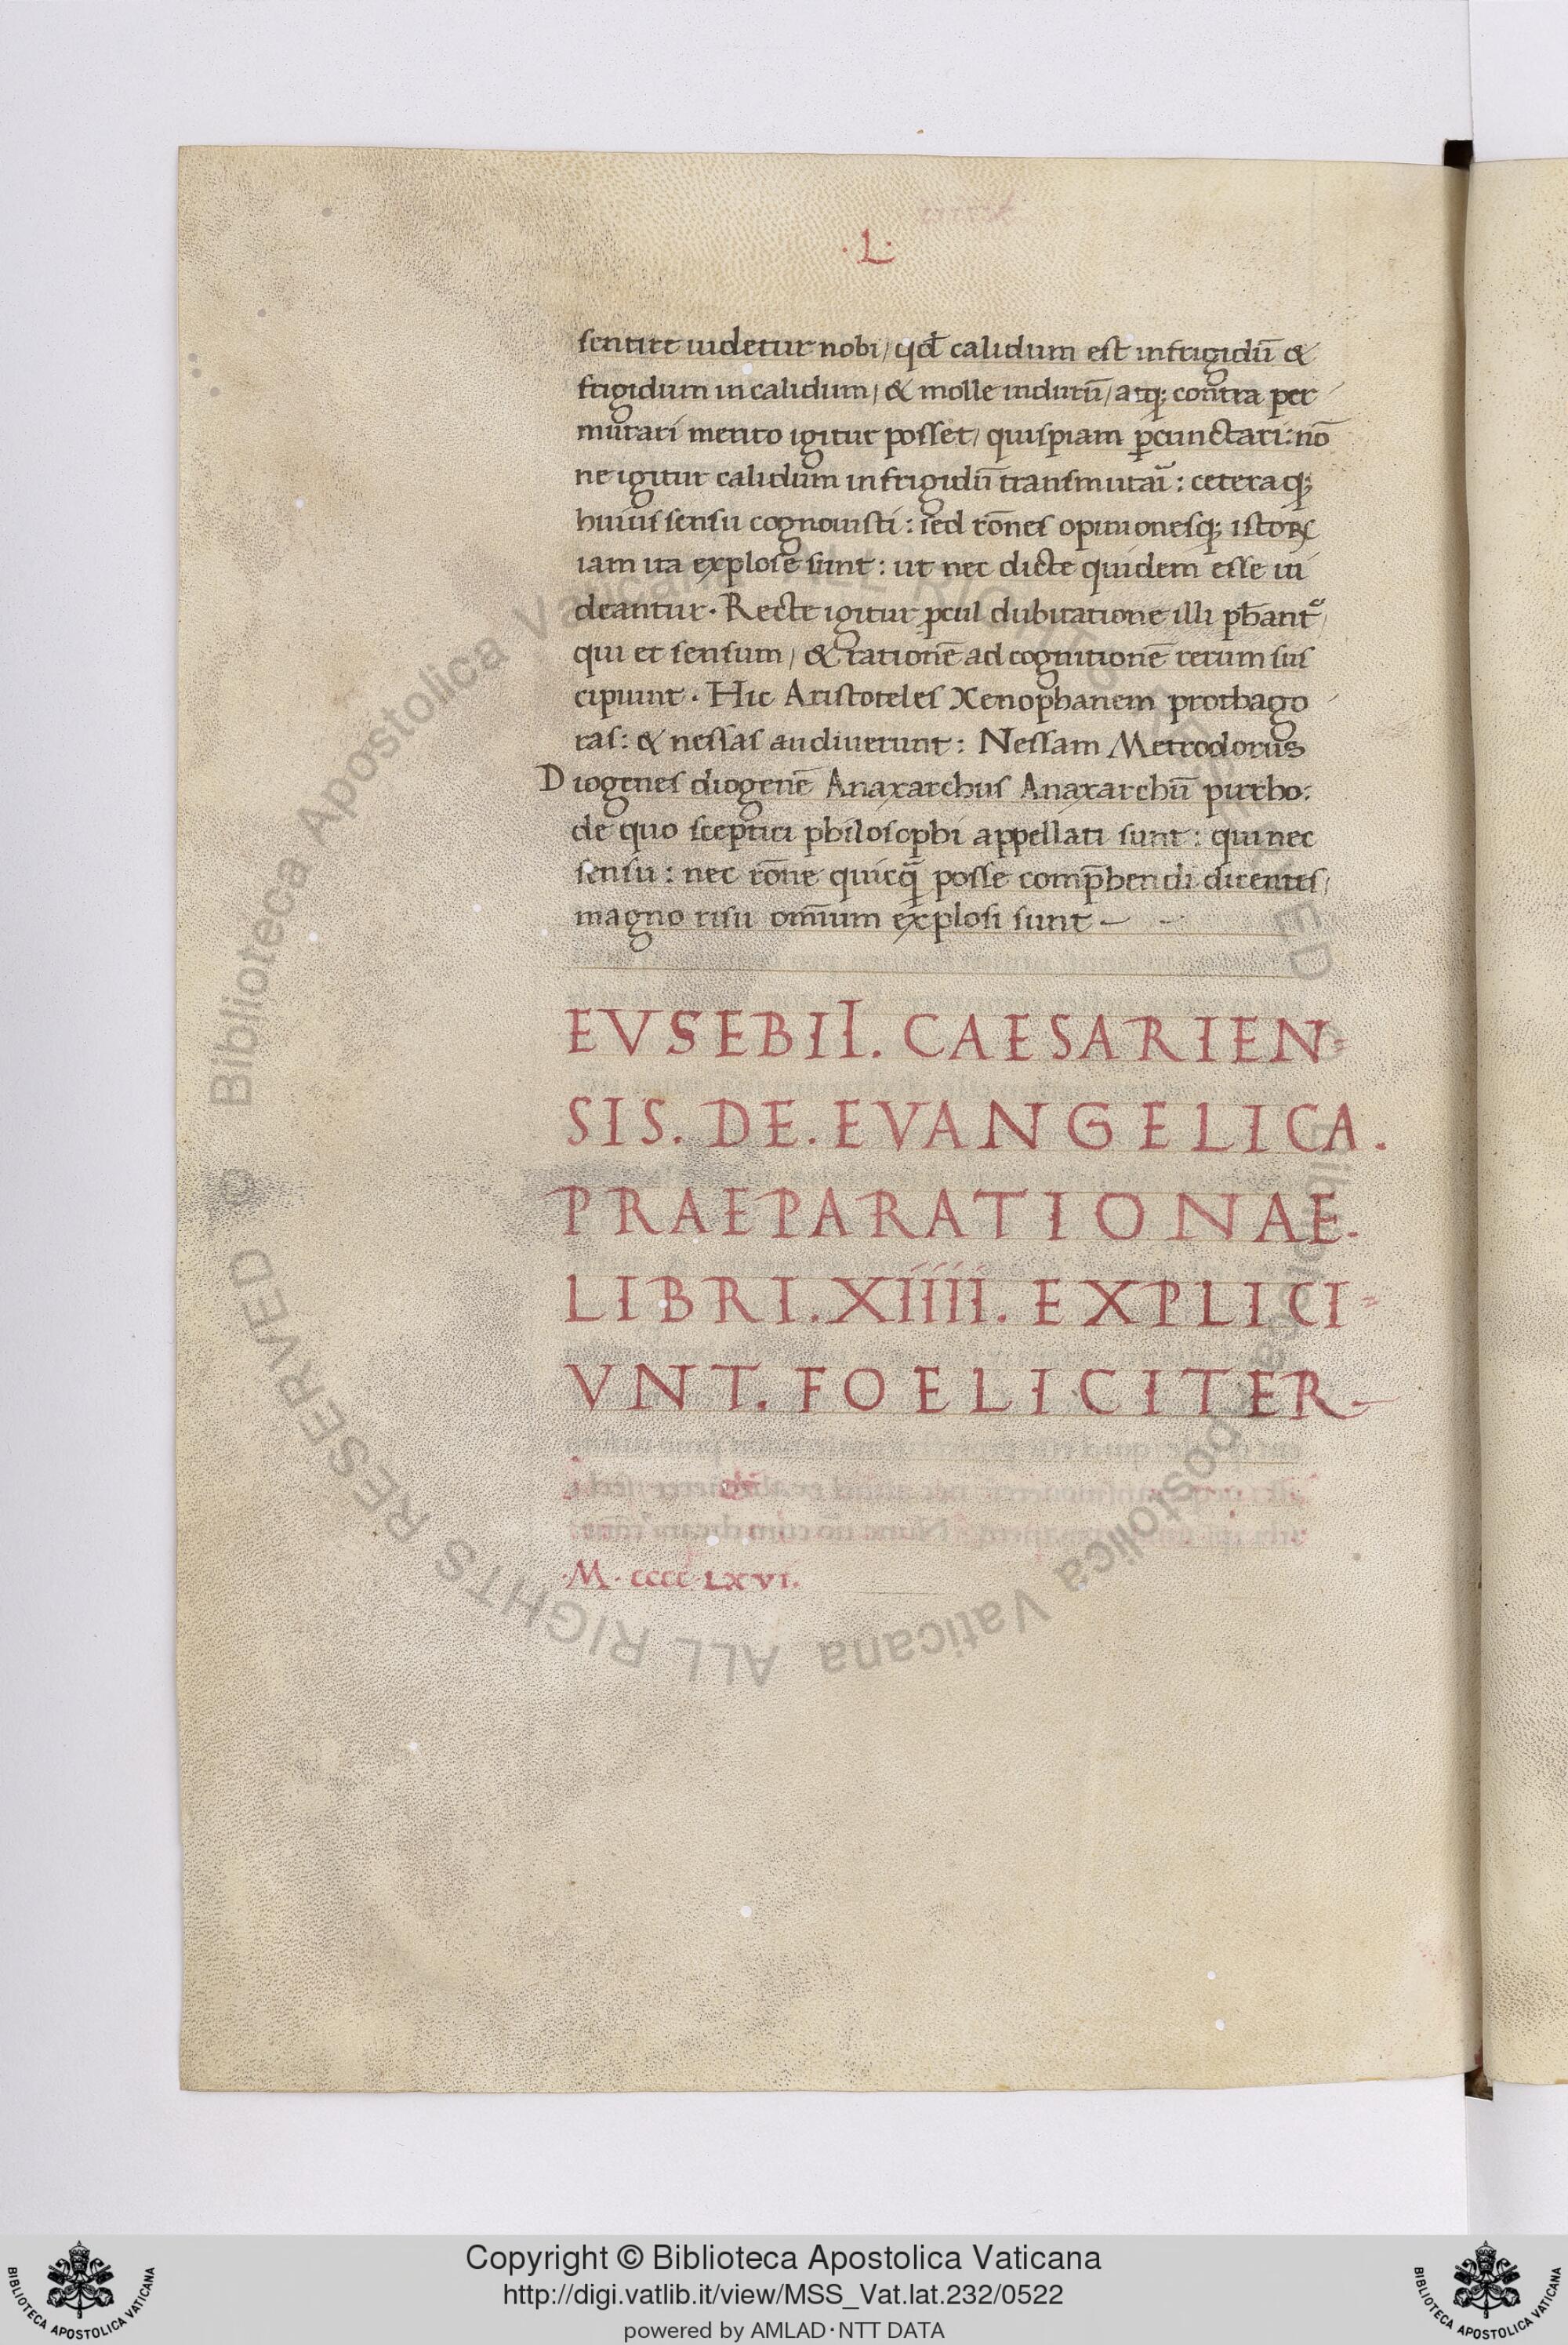 ·L·
sentire uidetur nobi/ qđ calidum est in frigidū &
frigidum in calidum/ & molle in durū/ atq; contra per
mutari merito igitur posset/ quispiam ꝑcunctari: nō
ne igitur calidum in frigidū transmutaī: ceteraq;
huius sensu cognouisti: sed rōnes opinionesq; istoꝝ
iam ita explose sunt: ut nec dicte quidem esse ui
deantur. Recte igitur ꝓcul dubitatione illi ꝓbant᷑/
qui et sensum/ & rationē ad cognitionē rerum sus
cipiunt. Hic Aristoteles Xenophanem prothago
ras: & nessas audiuerunt: Nessam Metrodorus
Diogenes diogenē Anaxarchus Anaxarchū pirrho:
de quo sceptici philosophi appellati sunt: qui nec
sensu: nec rōne quicq̄ posse comp̄hendi dicentes/
magno risu omīum explosi sunt –  –
EVSEBII. CAESARIEN-
SIS. DE. EVANGELICA.
PRAEPARATIONAE.
LIBRI. XIIII. EXPLICI=
VNT. FOELICITER-
.M. CCCC LXVI.
Biblioteca Apostolica Vaticana ALL RIGHTS RESERVED ©
Biblioteca Apostolica Vaticana ALL RIGHTS RESERVED ©
Copyright © Biblioteca Apostolica Vaticana
http://digi.vatlib.it/view/MSS_Vat.lat.232/0522
powered by AMLAD·NTT DATA
BIBLIOTECA APOSTOLICA VATICANA
BIBLIOTECA APOSTOLICA VATICANA